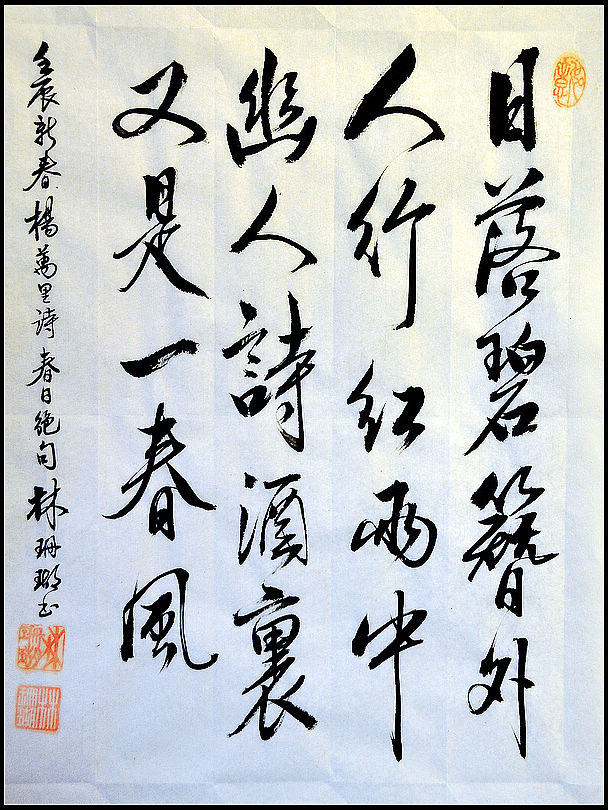 日落碧簪外
人行红雨中
幽人詩酒裏
又是一春風
壬辰新春楊萬里詩春日絕句林珊瑚书